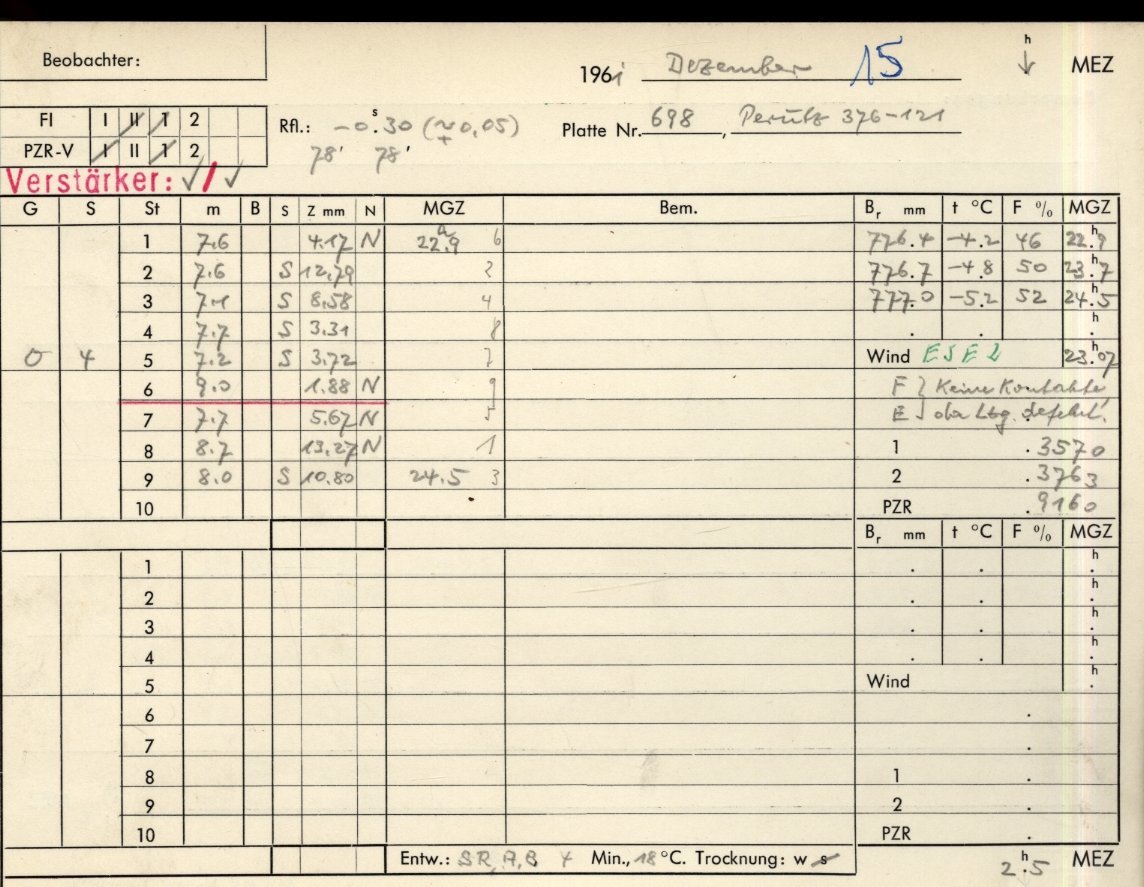 Beobachter:
1961 Dezember 15 h MEZ
FI I II 1 2
PZR-V I II 1 2
Rfl.: -0.s30 (∓0,05)
78' 78'
Platte Nr. 698, Perutz 376-121
Verstärker: √/√
G S St m B S Z mm N MGZ Bem. Br mm t °C F % MGZ
1 7.6 4.17 N 22.h9 6 776.4 -4.2 46 22.h9
2 7.6 S 12,79 2 776.7 -4.8 50 23.h7
3 7.1 S 8,58 4 777.0 -5.2 52 24.h5
4 7.7 S 3.31 8 . . h.
0 4 5 7.2 S 3.72 7 Wind ESE 2 23.h07
6 9.0 1.88 N 9 F } Keine Kontakte
7 7.7 5.67 N 5 E } oder Ltg. defekt.
8 8.7 13,27 N 1 1 .3570
9 8.0 S 10.80 24.5 3 2 .3763
10 PZR .9160
Br mm t °C F % MGZ
1 . . h.
2 . . h.
3 . . h.
4 . . h.
5 Wind h.
6 .
7 .
8 1 .
9 2 .
10 PZR .
Entw.: SR, A, B 4 Min., 18 °C. Trocknung: w s 2.h5 MEZ